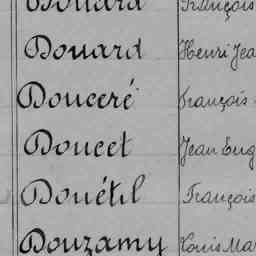 Douard François
Douard Henri Jea
Douceré François
Doucet Jean Eug
Douétil François
Douzamy Louis Ma